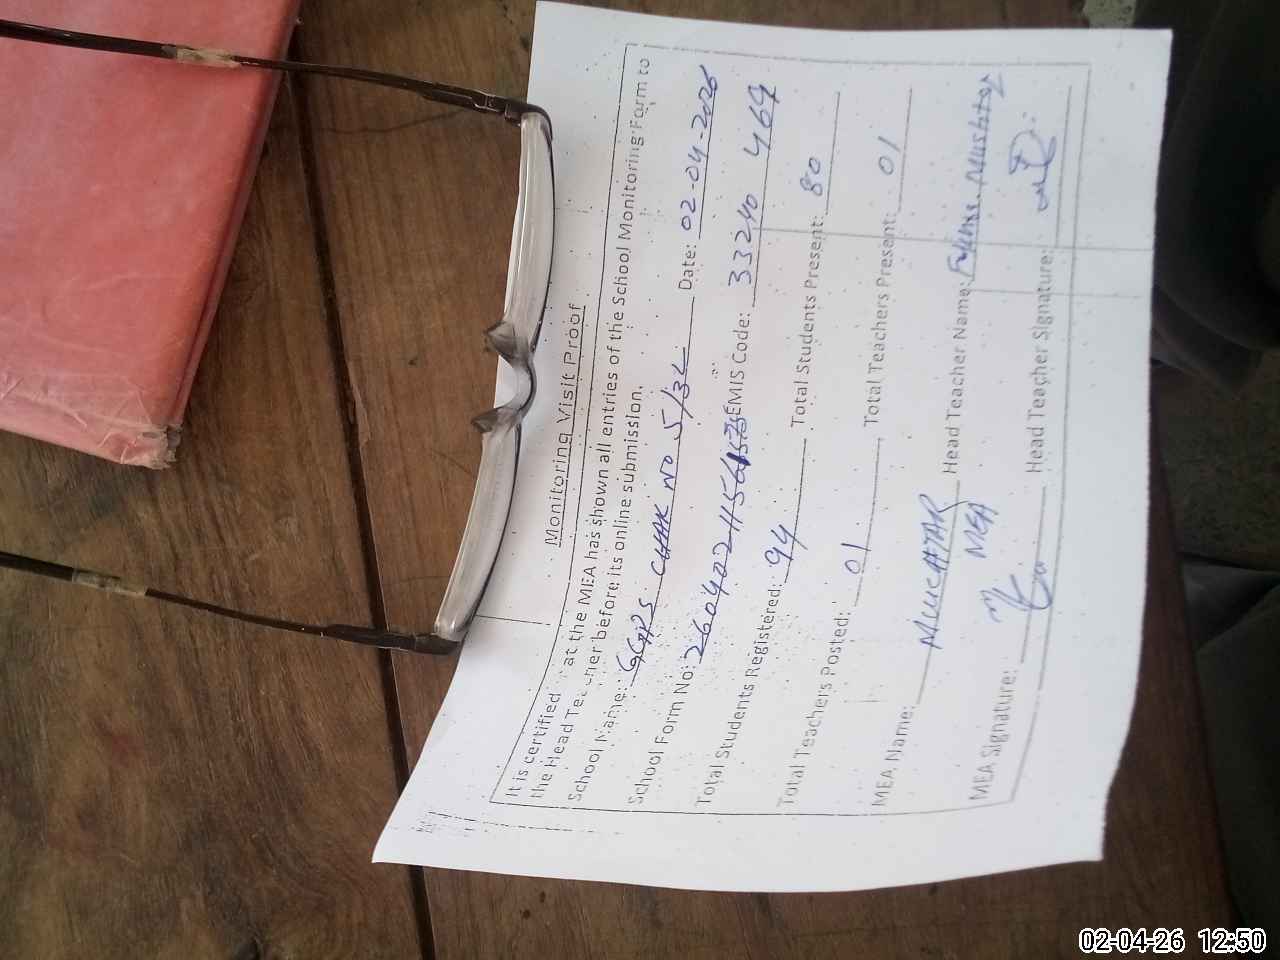 Monitoring Visit Proof
It is certified at the MEA has shown all entries of the School Monitoring Form to
the Head Teacher before its online submission.
School Name: GGPS CHAK NO 5/3L Date: 02-04-2026
School Form No: EMIS Code: 33240 469
Total Students Registered: 94 Total Students Present: 80
Total Teachers Posted: 01 Total Teachers Present: 01
MEA Name: MUKHTAR Head Teacher Name: Mushtaq
MEA
MEA Signature: Head Teacher Signature:
02-04-26 12:50